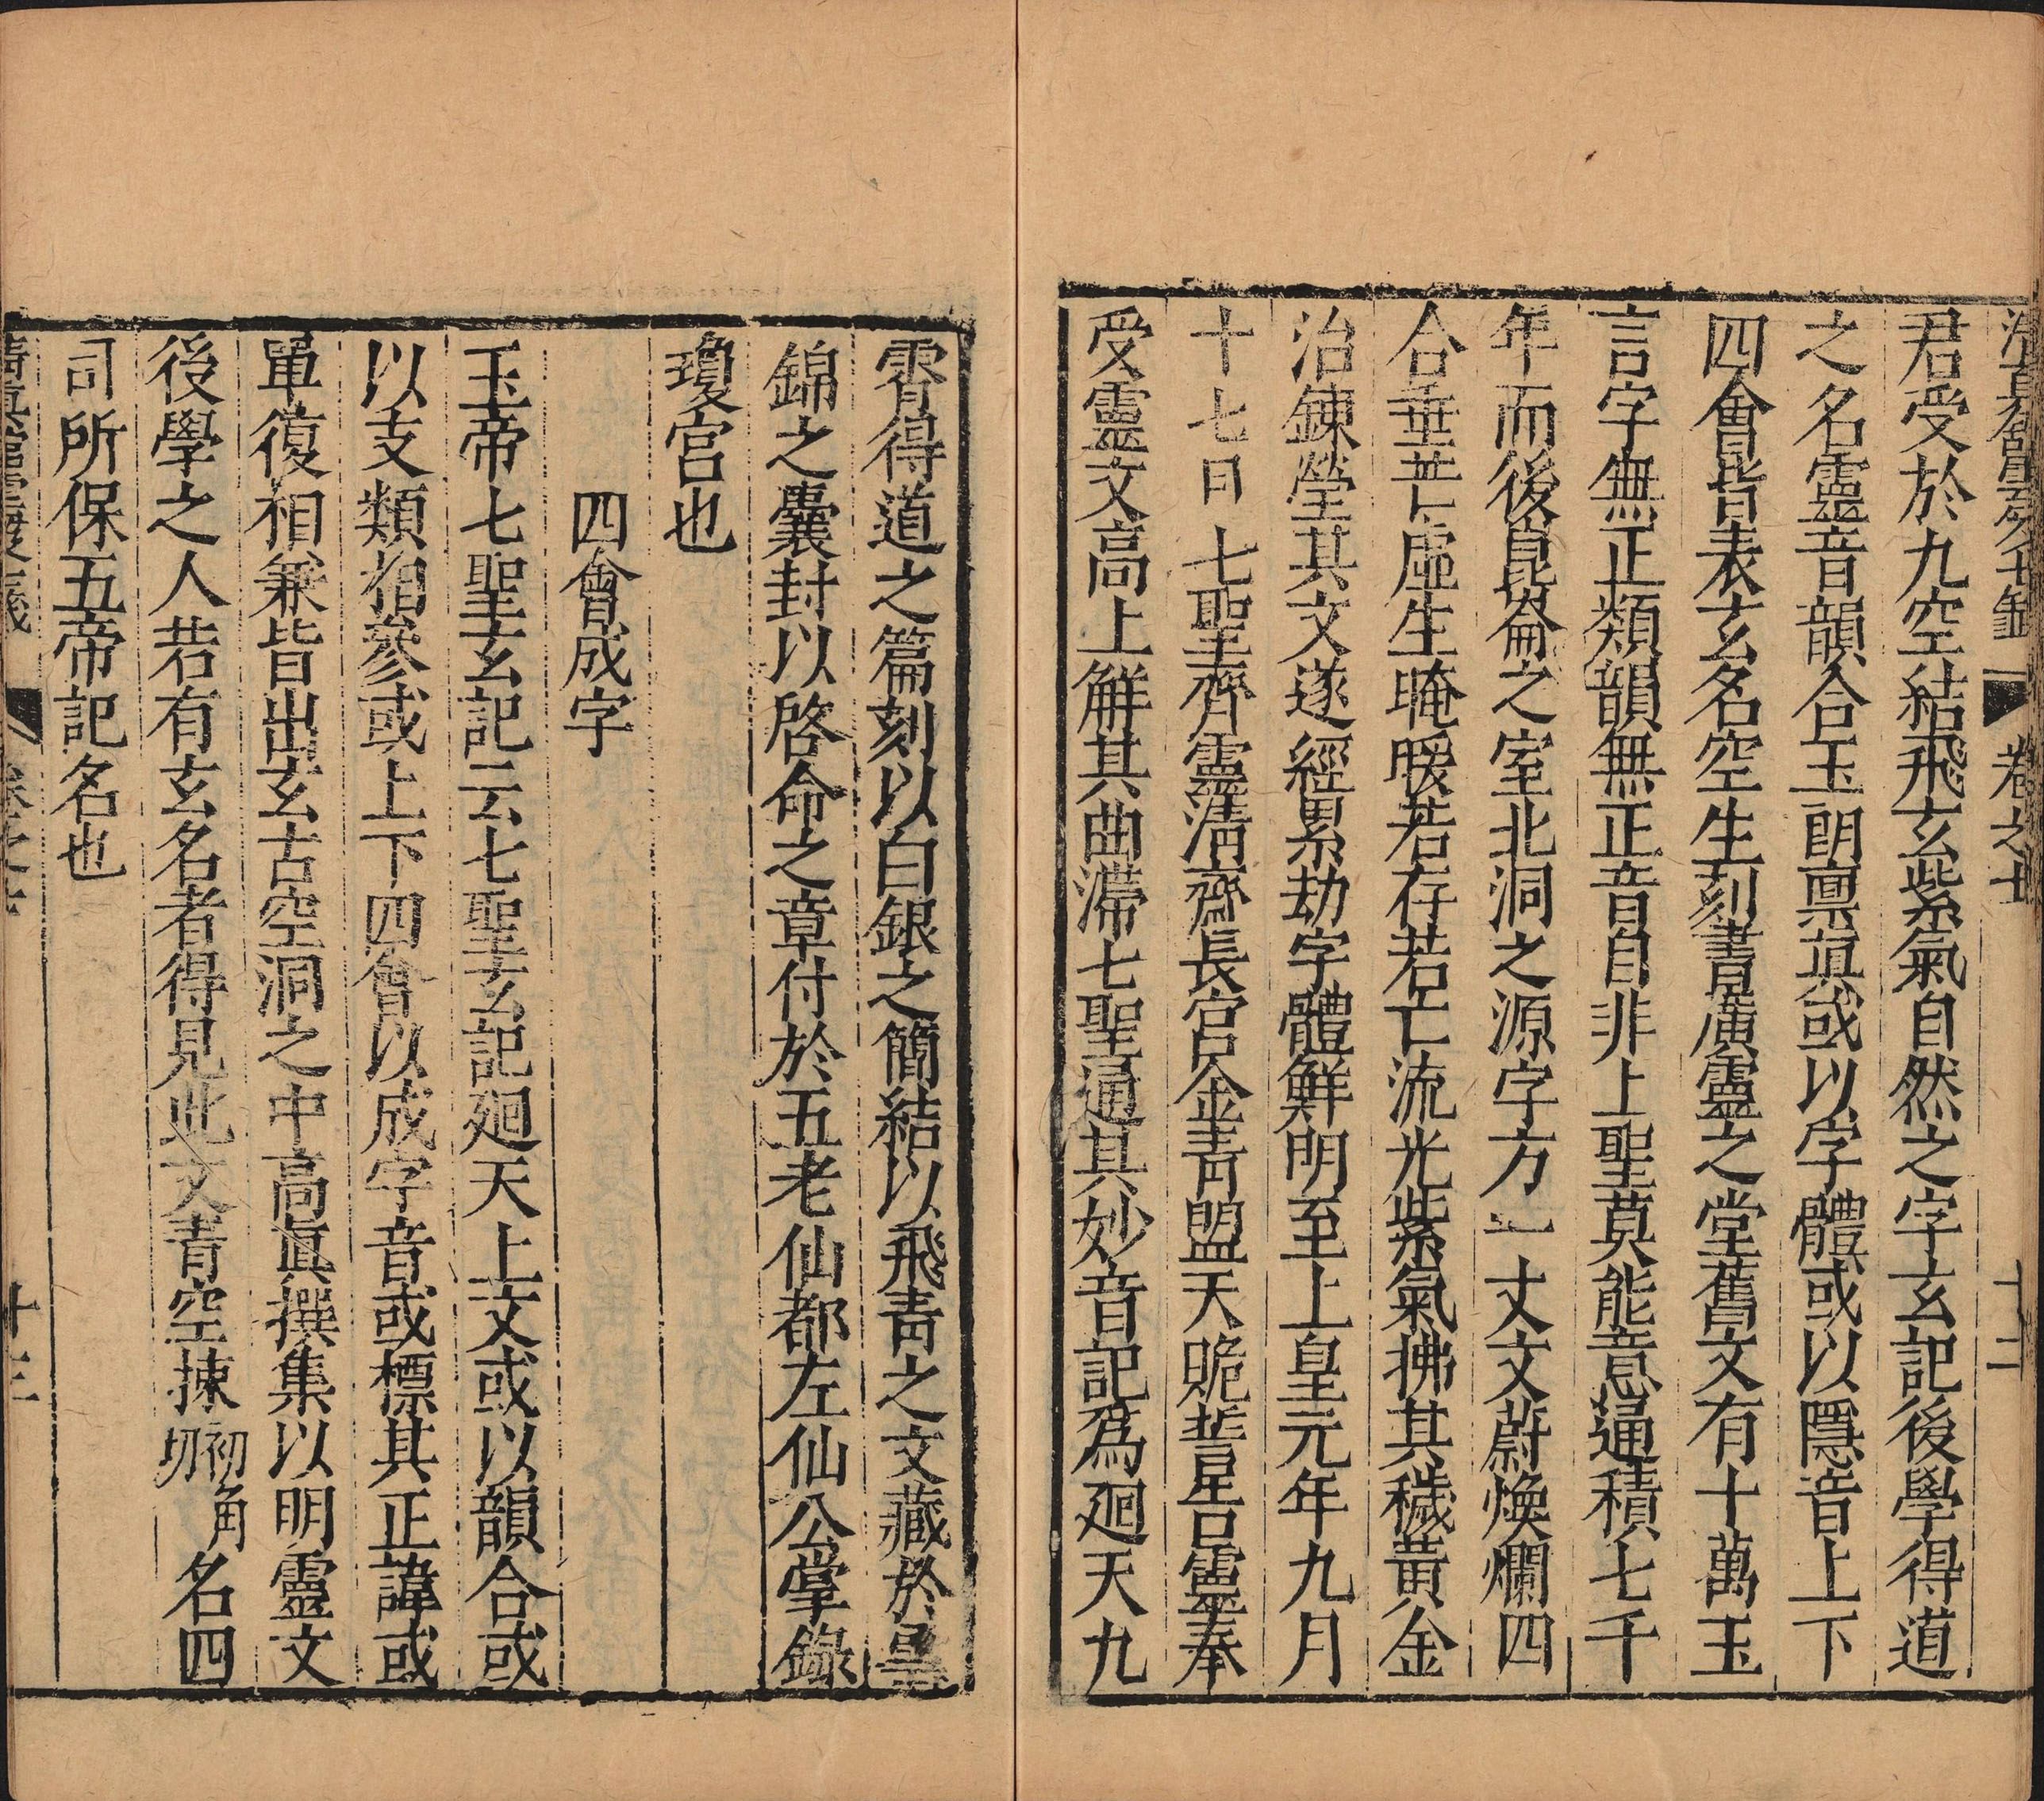 君受於九空結飛玄紫氣自然之字玄記後學得道
之名靈音韻合玉朗禀眞或以字體或以隱音上下
四會皆表玄名空生刻書廣靈之堂舊文有十萬玉
言字無正類韻無正音自非上聖莫能意通積七千
年而後崑崙之室北洞之源字方一丈文蔚煥爛四
合垂芒虛生晻曖若存若亡流光紫氣拂其穢黃金
治鍊瑩其文遂經累劫字體鮮明至上皇元年九月
十七日七聖齊靈清齋長宮金青盟天跪誓告靈奉
受靈文高上解其曲滯七聖通其妙音記爲廻天九
霄得道之篇刻以白銀之簡結以飛青之文藏於
錦之囊封以啓命之章付於五老仙都左仙公掌錄
瓊宮也
四會成字
玉帝七聖玄記云七聖玄記廻天上文或以韻合或
以支類相參或上下四會以成字音或標其正諱或
單復相兼皆出玄古空洞之中高眞撰集以明靈文
後學之人若有玄名者得見此文青空揀初角切名四
司所保五帝記名也
卷之七
十三